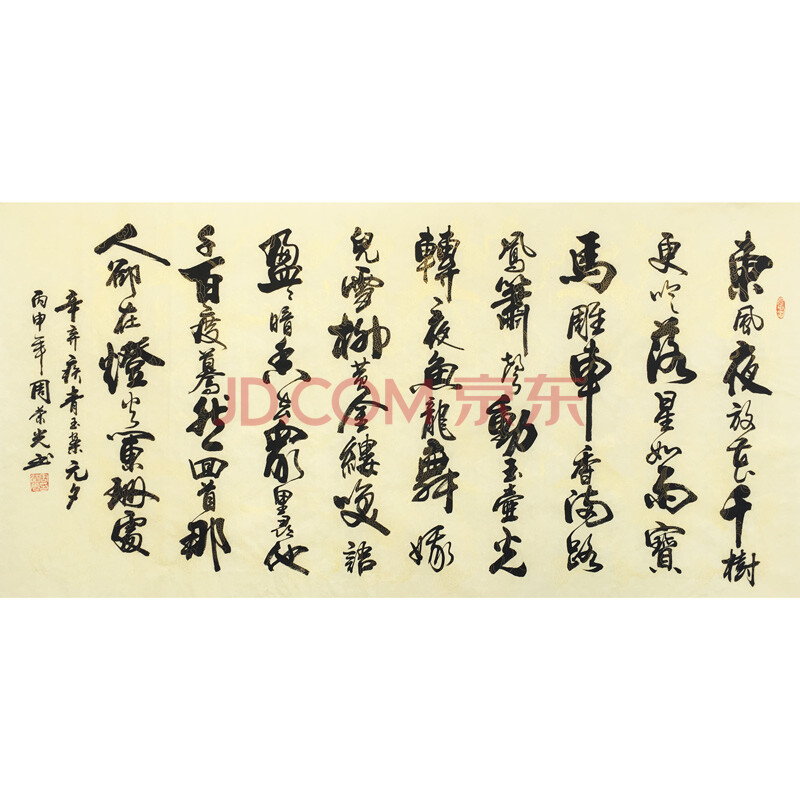 東風夜放花千樹
更吹落星如雨寶
馬雕車香滿路
鳳簫聲動玉壺光
轉夜魚龍舞娥
兒雪柳黃金縷笑語
盈々暗香去眾里尋他
千百度驀然回首那
人卻在燈火闌珊處
辛弃疾青玉案元夕
丙申年周荣光书
JD.COM 京东